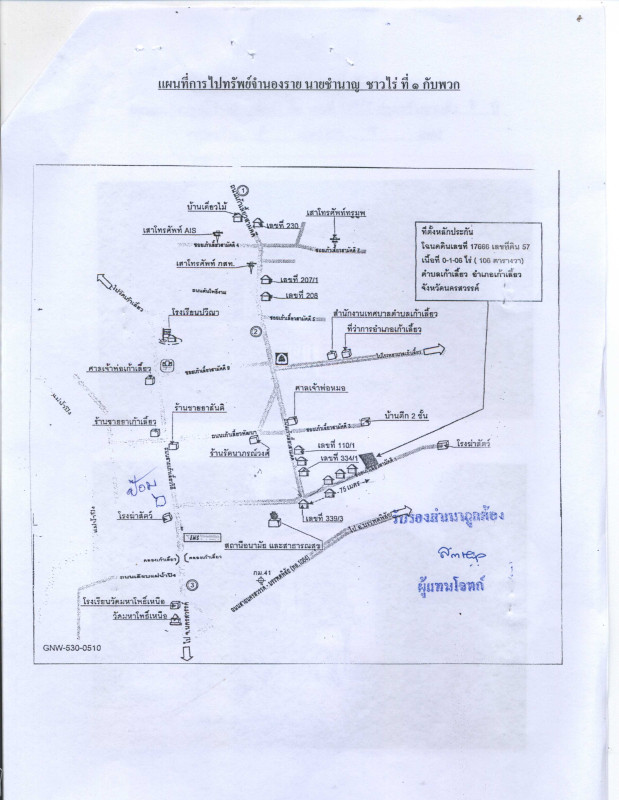 แผนที่การไปทรัพย์จำนองราย นายชำนาญ ชาวไร่ ที่ ๑ กับพวก
1
บ้านเดี่ยวไม้
เลขที่ 230
เสาโทรศัพท์ทรูมูพ
เสาโทรศัพท์ AIS
เสาโทรศัพท์ ทศท.
ที่ตั้งหลักประกัน
โฉนดที่ดินเลขที่ 17666 เลขที่ดิน 57
เนื้อที่ 0-1-06 ไร่ ( 106 ตารางวา)
ตำบลเก้าเลี้ยว อำเภอเก้าเลี้ยว
จังหวัดนครสวรรค์
เลขที่ 207/1
เลขที่ 208
ไปวัดเก้าเลี้ยว
โรงเรียนปวีณา
สำนักงานเทศบาลตำบลเก้าเลี้ยว
ที่ว่าการอำเภอเก้าเลี้ยว
2
ศาลเจ้าพ่อเก้าเลี้ยว
แม่น้ำปิง
ร้านขายยาสันติ
ศาลเจ้าพ่อหมอ
บ้านตึก 2 ชั้น
ร้านขายยาเก้าเลี้ยว
ถนนเก้าเลี้ยวพัฒนา
ร้านรัตนาภรณ์วงศ์
เลขที่ 110/1
เลขที่ 334/1
โรงฆ่าสัตว์
75 เมตร
ป้อม
แม่น้ำปิง
โรงฆ่าสัตว์
เลขที่ 339/3
รับรองสำเนาถูกต้อง
สถานีอนามัย และสาธารณสุข
คลองเก้าเลี้ยว
คลองเก้าเลี้ยว
ถนนเลียบแม่น้ำปิง
กม.41
3
ผู้แทนโจทก์
โรงเรียนวัดมหาโพธิ์เหนือ
วัดมหาโพธิ์เหนือ
ไป จ.นครสวรรค์
GNW-530-0510